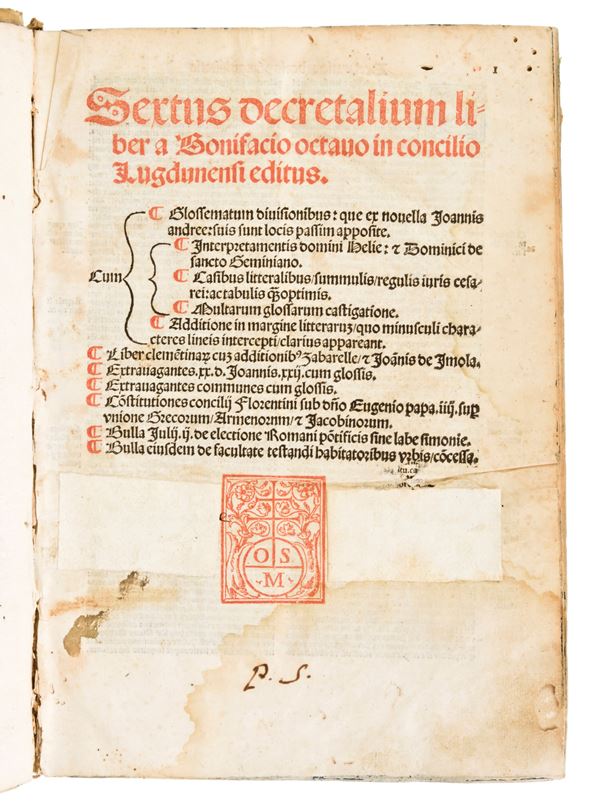 1
Sextus decretalium li-
ber a Bonifacio octauo in concilio
Lugdunensi editus.
Cum
¶ Glossematum diuisionibus: que ex nouella Joannis
andree: suis sunt locis passim apposite.
¶ Interpretamentis domini Helie: ⁊ Dominici de
sancto Geminiano.
¶ Casibus litteralibus/summulis/regulis iuris cesa-
rei: ac tabulis q̃ optimis.
¶ Multarum glossarum castigatione.
¶ Additione in margine litteraruz/quo minusculi chara-
cteres lineis intercepti/clarius appareant.
¶ Liber clemētinaꝝ cuz additionibꝰ Zabarelle/⁊ Joānis de Jmola.
¶ Extrauagantes. xx. d. Joannis. xxij. cum glossis.
¶ Extrauagantes communes cum glossis.
¶ Cōstitutiones concilij Florentini sub dño Eugenio papa. iiij. suꝑ
vnione Grecorum/Armenorum/⁊ Jacobinorum.
¶ Bulla Julij. ij. de electione Romani pōtificis sine labe simonie.
¶ Bulla eiusdem de facultate testandi habitatoribus vrbis/cōcessa.
O S
M
P. S.